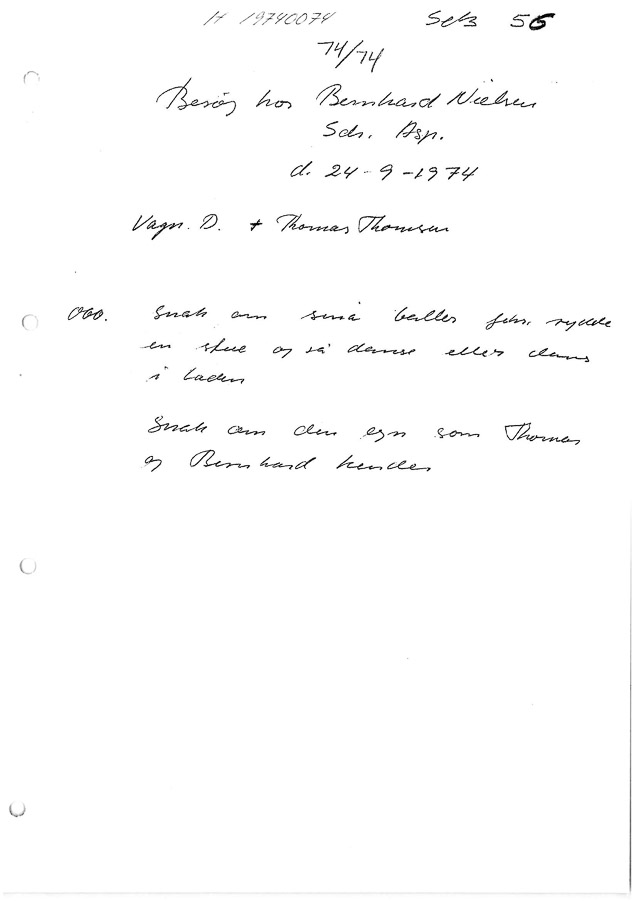 H 19740074 Seb 56
74/74
Besøg hos Bernhard Nielsen
Sdr. Asp.
d. 24-9-1974
Vagn. D. + Thomas Thomsen
000. Snak om små baller rydde
en stue og så danse eller dans
i laden
Snak om den egn som Thomas
og Bernhard kender